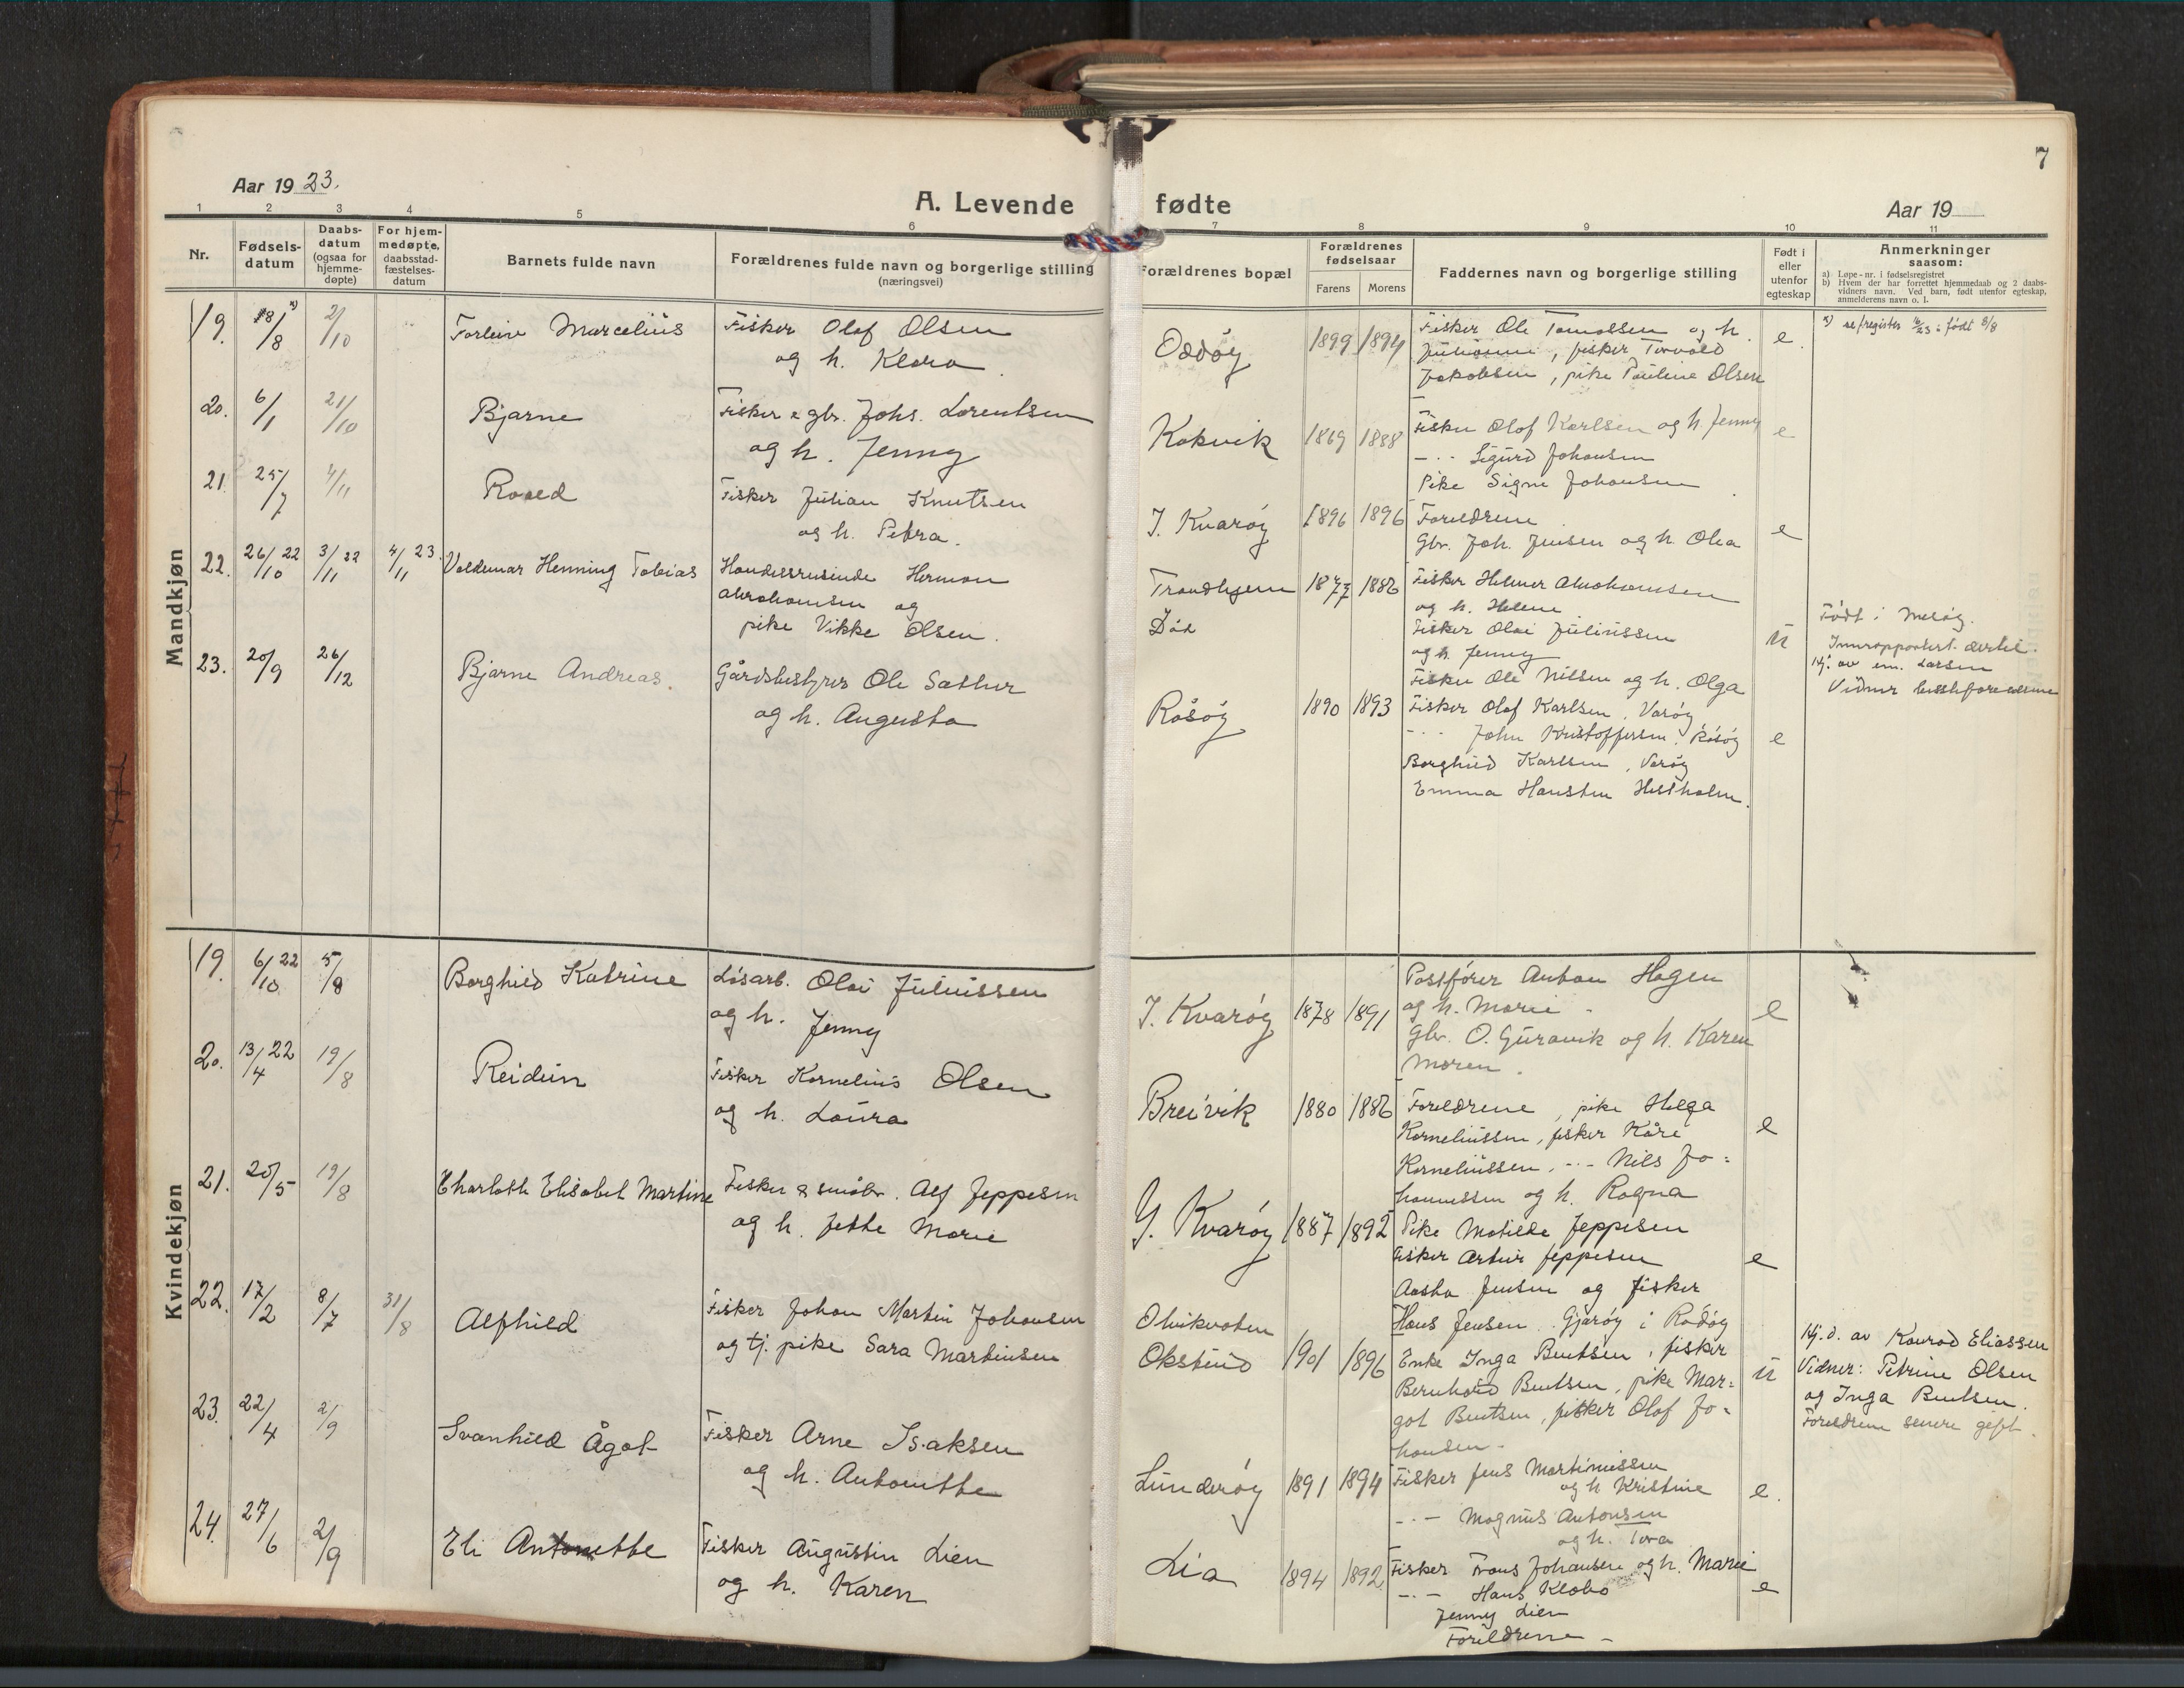 7
Aar 1923.
A. Levende fødte
Aar 19
1 2 3 4 5 6 7 8 9 10 11
Nr.
Fødsels-
datum
Daabs-
datum
(ogsaa for
hjemme-
døpte)
For hjem-
medøpte,
daabsstad-
fæstelses-
datum
Barnets fulde navn
Forældrenes fulde navn og borgerlige stilling
(næringsvei)
Forældrenes bopæl
Forældrenes
fødselsaar
Farens Morens
Faddernes navn og borgerlige stilling
Født i
eller
utenfor
egteskap
Anmerkninger
saasom:
a) Løpe-nr. i fødselsregistret
b) Hvem der har forrettet hjemmedaab og 2 daabs-
vidners navn. Ved barn, født utenfor egteskap,
anmelderens navn o. l.
Mandkjøn
19. 18/8 x) 2/10 Torleiv Marcelius Fisker Olof Olsen
og h. Klara
Oddøy 1899 1894
Fisker Ole Tomassen og h.
Julianne, fisker Torvald
Jakobsen, pike Pauline Olsen
e.
x) født 8/8
20. 6/1 21/10 Bjarne Fisker & gbr. Johs. Lorentsen
og h. Jenny
Kokvik 1869 1888
Fisker Olof Karlsen og h. Jenny
-..- Sigurd Johansen
Pike Signe Johansen
e
21. 25/7 4/11 Roald Fisker Julian Knutsen
og h. Petra.
I. Kvarøy 1896 1896
Foreldrene
Gbr. Joh. Jensen og h. Olea
e
22. 26/10 22 3/11 22 4/11 23. Valdemar Henning Tobias Handelsreisende Herman
Abrahamsen og
pike Vikke Olsen.
Trondhjem 1877 1886
Fisker Helmer Abrahamsen
og h. Helene
Fisker Olai Juliussen
og h. Jenny
Fisker Ole Nilsen og h. Olga
u
Født i Meløy.
Innrapportert dertil.
Hj. av em. Larsen
Vidner besteforeldrene
23. 20/9 26/12 Bjarne Andreas. Gårdsbestyrer Ole Sæther
og h. Augusta
Råsøy 1890 1893
Fisker Olof Karlsen, Varøy
-..- John Kristoffersen, Råsøy
Borghild Karlsen, Varøy
Emma Hansten Hestholm.
e
Kvindekjøn
19. 6/10 22 5/8 Borghild Katrine Løsarb. Olai Juliussen
og h. Jenny
I. Kvarøy 1878 1891
Postfører Anton Hagen
og h. Marie.
Gbr. O. Guravik og h. Karen
Moren.
e
20. 13/4 22 19/8 Reidun Fisker Kornelius Olsen
og h. Laura
Breivik 1880 1886
Foreldrene, pike Helga
Korneliussen, fisker Kåre
Korneliussen, -..- Nils Jo-
hannessen og h. Ragna
e
21. 20/5 19/8 Charloth Elisabet Martine Fisker & småbr. Alf Jeppesen
og h. Jette Marie
Y. Kvarøy 1887 1892
Pike Matilde Jeppesen
Fisker Artur Jeppesen
Aasta Jensen og fisker
Hans Jensen. Gjærøy i Rødøy
e
22. 17/2 8/7 31/8 Alfhild Fisker Johan Martin Johansen
og tj. pike Sara Martinsen
Olvikvaten
Okstind 1901 1896
Enke Inga Bentsen, fisker
Bernhard Bentsen, pike Mar-
got Bentsen, fisker Olof Jo-
hansen.
u
Hj. d. av Konrad Eliassen
Vidner: Petrine Olsen
og Inga Bentsen.
Foreldrene senere gift.
23. 22/4 2/9 Svanhild Ågot Fisker Arne Isaksen
og h. Antonette
Lunderøy 1891 1894
Fisker Jens Martinussen
og h Kristine
-..- Magnus Antonsen
og h. Tora
e.
24. 27/6 2/9 Eli Antonette Fisker Augustin Lien
og h. Karen
Lia 1894 1892
Fisker Frans Johansen og h. Marie
-..- Hans Klobo
Jenny Lien
Foreldrene -
e